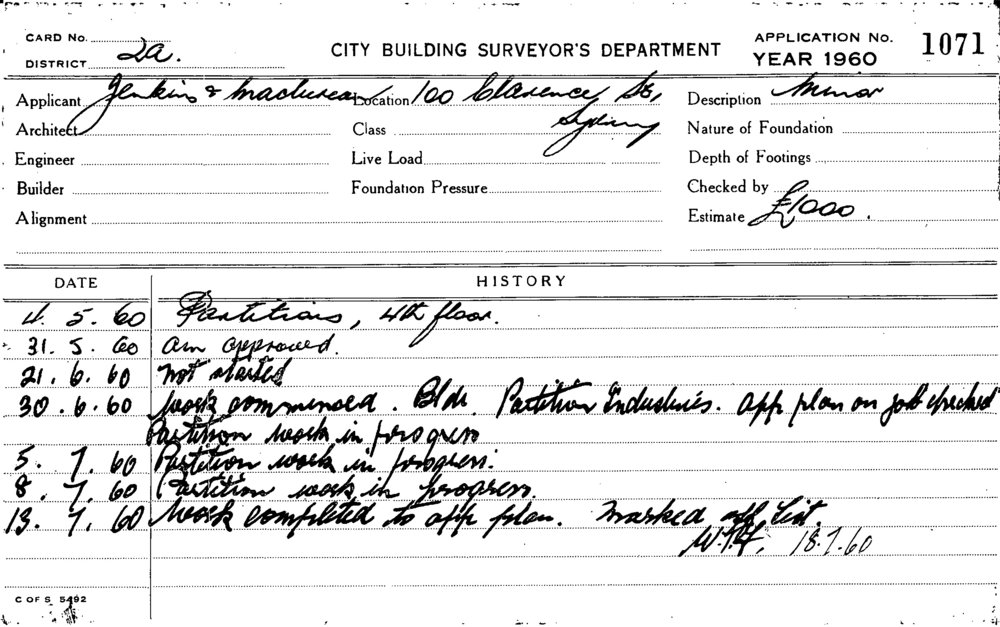 CARD No.
DISTRICT 2a.
CITY BUILDING SURVEYOR'S DEPARTMENT
APPLICATION No. 1071
YEAR 1960
Applicant Jenkins & Maclurcan Location 100 Clarence St, Description Minor
Architect Class Sydney Nature of Foundation
Engineer Live Load Depth of Footings
Builder Foundation Pressure Checked by
Alignment Estimate £1000.
DATE HISTORY
4. 5. 60 Partitions, 4th floor.
31. 5. 60 am approved.
21. 6. 60 Not started
30. 6. 60 Work commenced. Bldr. Partition Industries. app plan on job checked
Partition work in progress
5. 7. 60 Partition work in progress.
8. 7. 60 Partition work in progress.
13. 7. 60 Work completed to app plan. Marked off List.
18.7.60
C OF S 5492